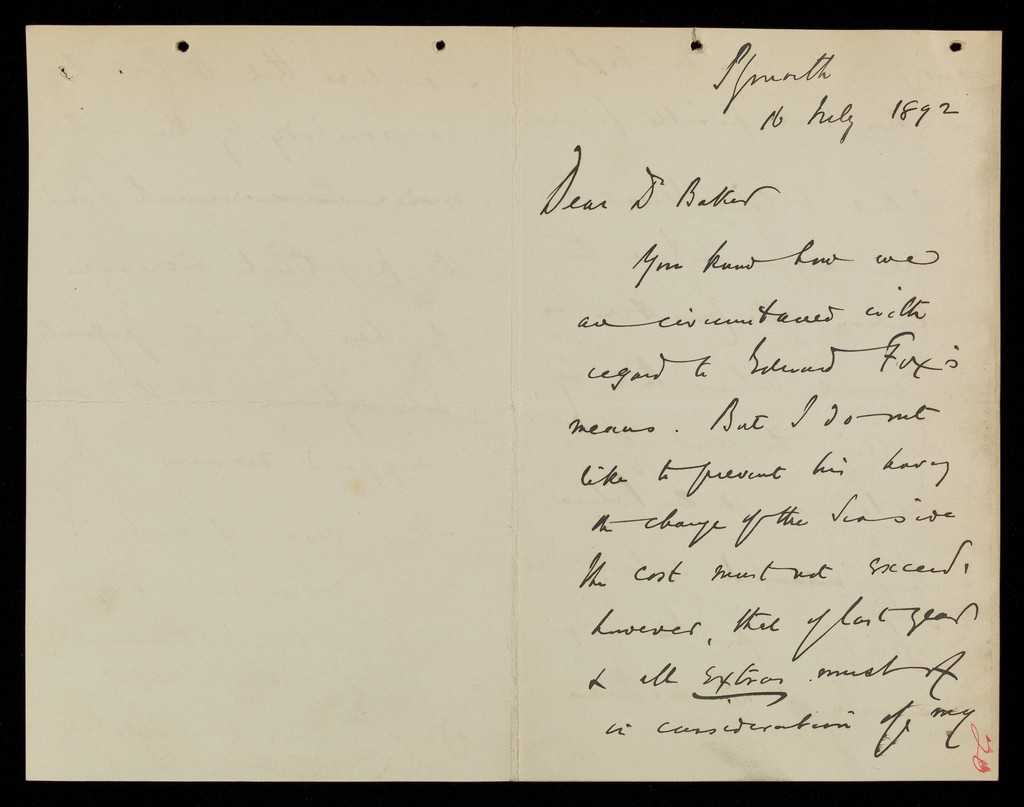 Plymouth
16 July 1892
Dear Dr Baker
You know how we
are circumstanced with
regard to Edward Fox's
means. But I do not
like to prevent his having
the change of the Seaside
The cost must not exceed,
however, that of last year
& all extras must
in consideration of my